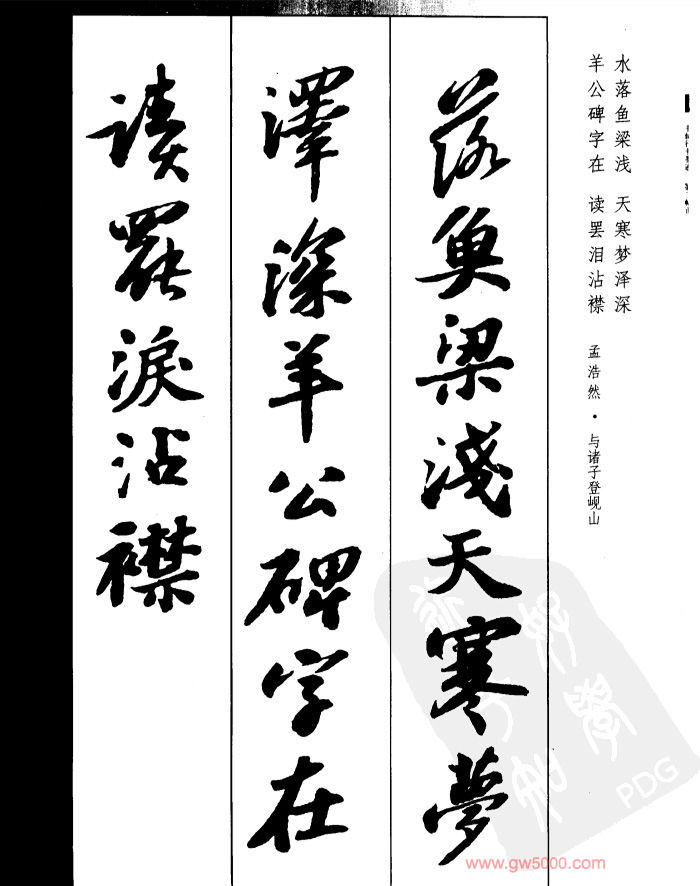 水落鱼梁浅 天寒梦泽深
羊公碑字在 读罢泪沾襟 孟浩然·与诸子登岘山
落魚梁淺天寒夢
澤深羊公碑字在
讀罷淚沾襟
PDG
www.gw5000.com